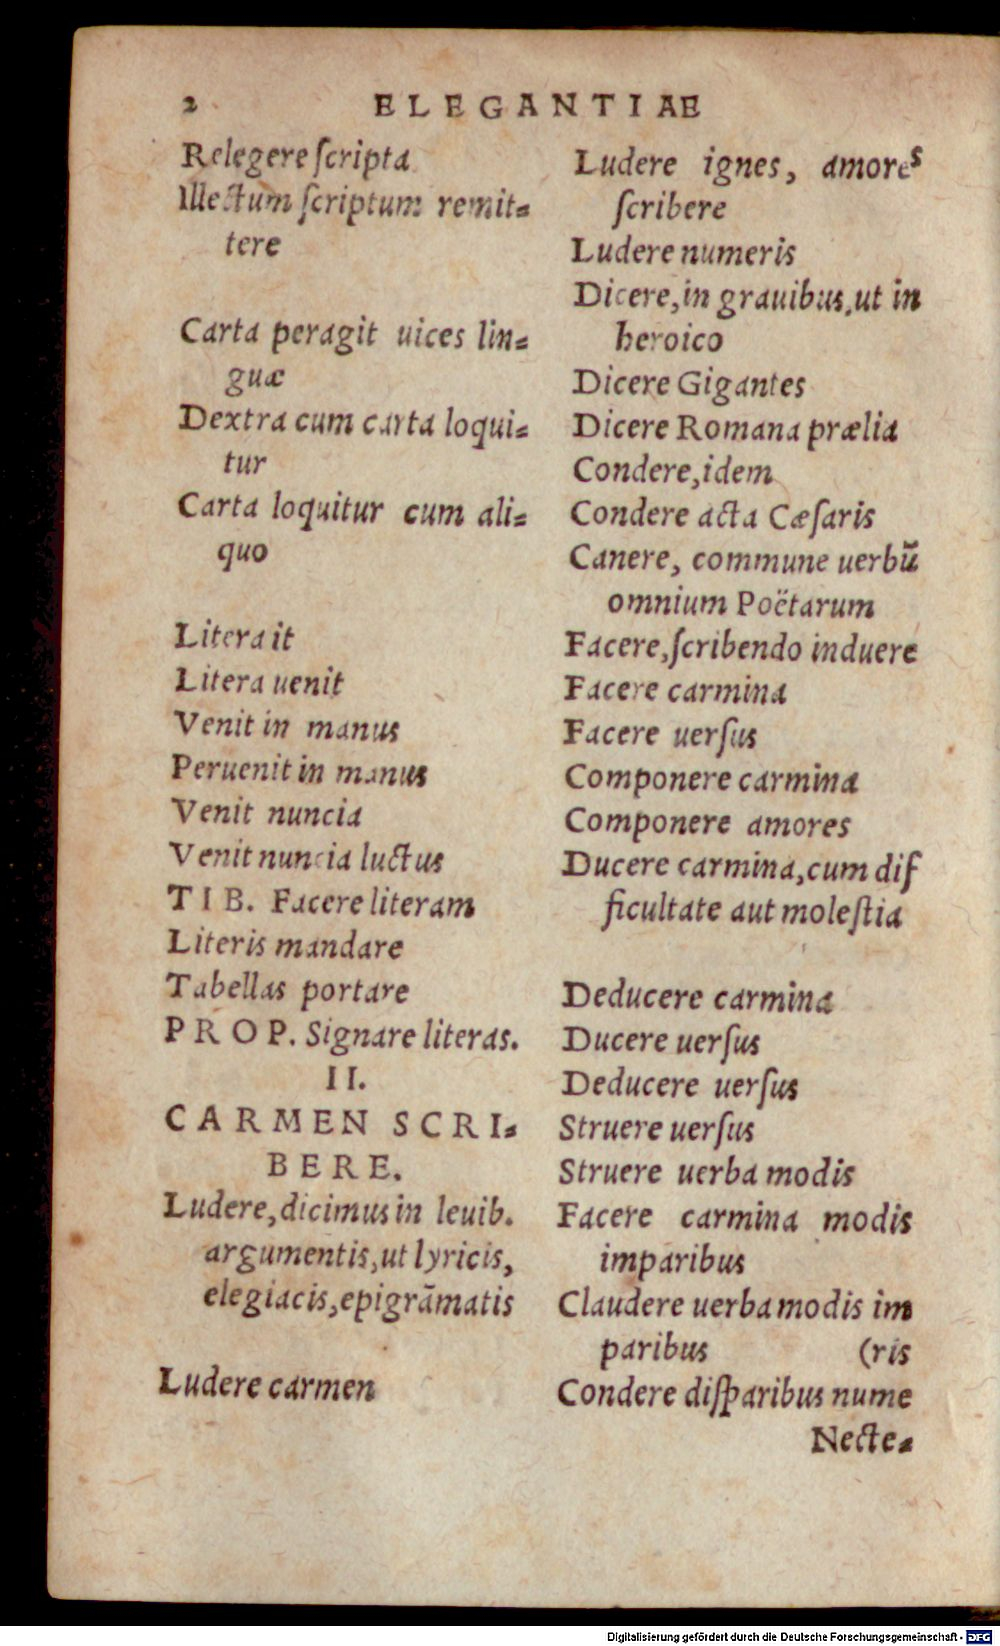 2 ELEGANTIAE
Relegere ſcripta
Illectum ſcriptum remit⸗
tere
Carta peragit uices lin⸗
guæ
Dextra cum carta loqui⸗
tur
Carta loquitur cum ali⸗
quo
Litera it
Litera uenit
Venit in manus
Peruenit in manus
Venit nuncia
Venit nuncia luctus
TIB. Facere literam
Literis mandare
Tabellas portare
PROP. Signare literas.
II.
CARMEN SCRI⸗
BERE.
Ludere, dicimus in leuib.
argumentis, ut lyricis,
elegiacis, epigrāmatis
Ludere carmen
Ludere ignes, amores
ſcribere
Ludere numeris
Dicere, in grauibus, ut in
heroico
Dicere Gigantes
Dicere Romana prælia
Condere, idem
Condere acta Cæſaris
Canere, commune uerbū
omnium Poëtarum
Facere, ſcribendo induere
Facere carmina
Facere uerſus
Componere carmina
Componere amores
Ducere carmina, cum dif
ficultate aut moleſtia
Deducere carmina
Ducere uerſus
Deducere uerſus
Struere uerſus
Struere uerba modis
Facere carmina modis
imparibus
Claudere uerba modis im
paribus (ris
Condere diſparibus nume
Necte⸗
Digitalisierung gefördert durch die Deutsche Forschungsgemeinschaft - DFG